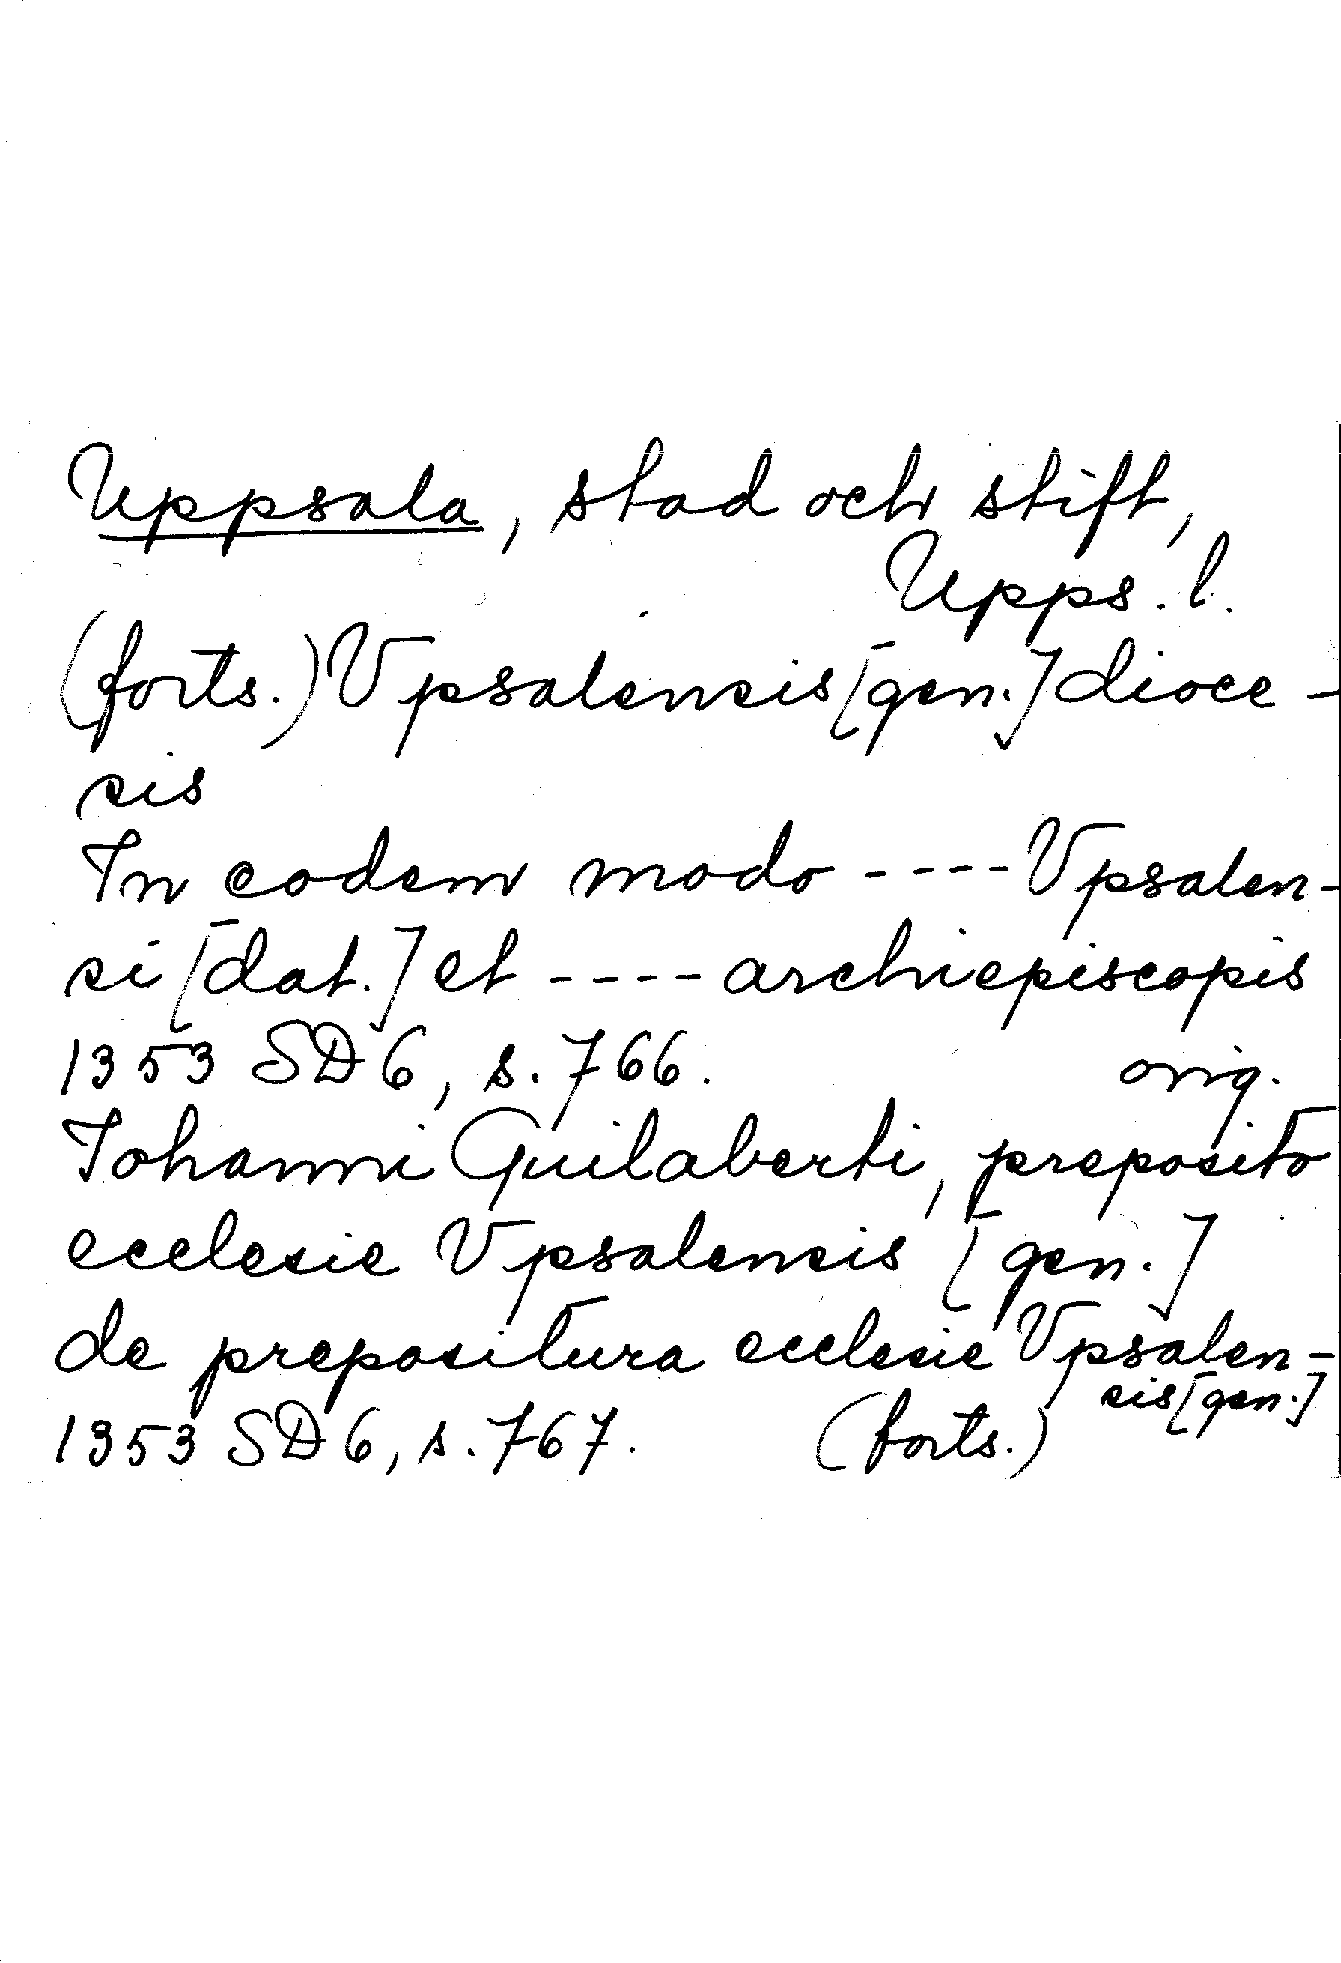 Uppsala, stad och stift,
Upps. l.
(forts.) Vpsalensis [gen.] dioce-
sis
In eodem modo ---- Vpsalen-
si [dat.] et ---- archiepiscopis
1353 SD 6, s. 766. orig.
Iohanni Guilaberti, preposito
ecclesie Vpsalensis [gen.]
de prepositura ecclesie Vpsalen-
sis [gen.]
1353 SD 6, s. 767. (forts.)